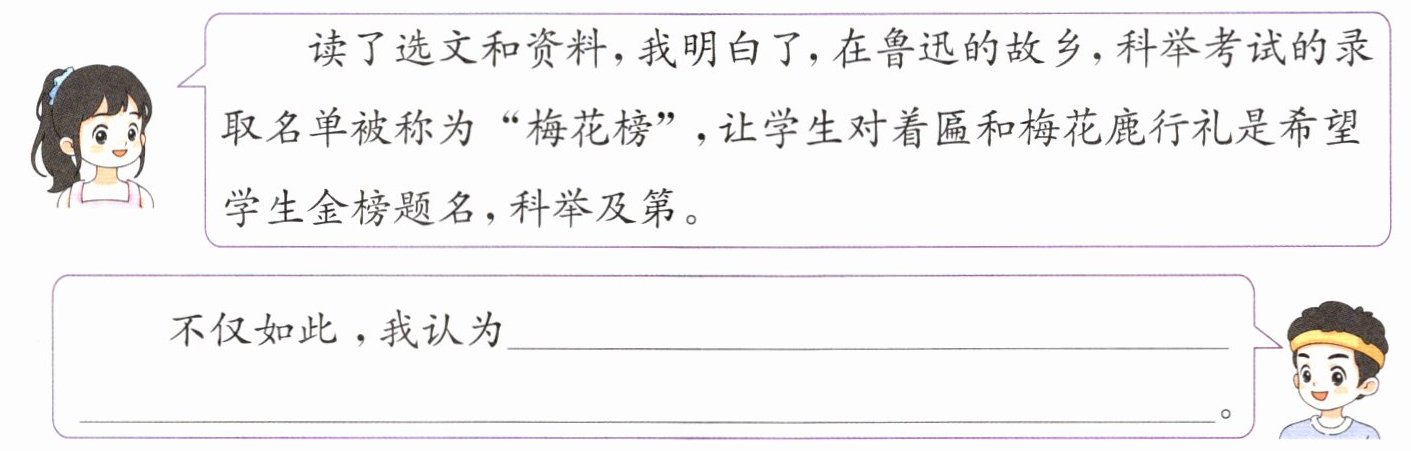 读了选文和资料，我明白了，在鲁迅的故乡，科举考试的录
取名单被称为“梅花榜”，让学生对着匾和梅花鹿行礼是希望
学生金榜题名，科举及第。
不仅如此，我认为
。